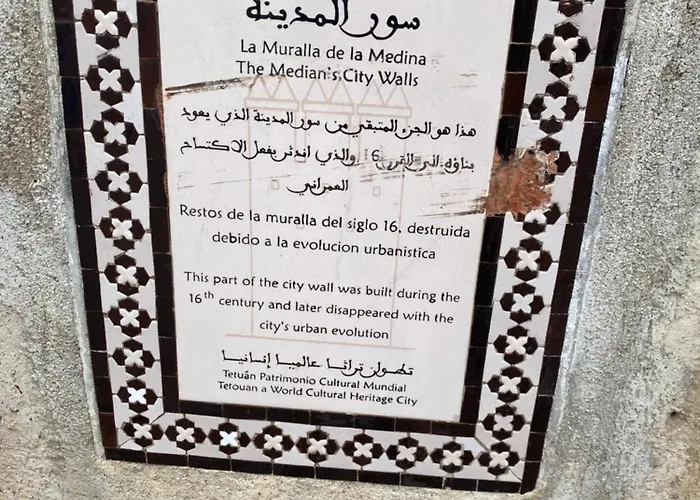 سور المدينة
La Muralla de la Medina
The Median's City Walls
هذا هو الجزء المتبقي من سور المدينة الذي يعود
بناؤه الى القرن 16 والذي اندثر بفعل الاكتساح
العمراني
Restos de la muralla del siglo 16, destruida
debido a la evolucion urbanistica
This part of the city wall was built during the
16th century and later disappeared with the
city's urban evolution
تطوان تراثا عالميا إنسانيا
Tetuán Patrimonio Cultural Mundial
Tetouan a World Cultural Heritage City